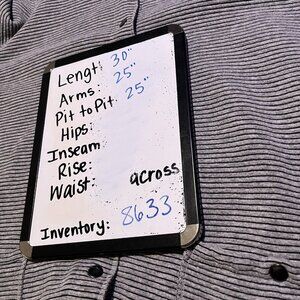 Lengt: 30"
Arms: 25"
Pit to Pit: 25"
Hips:
Inseam:
Rise:
Waist: across
Inventory: 8633